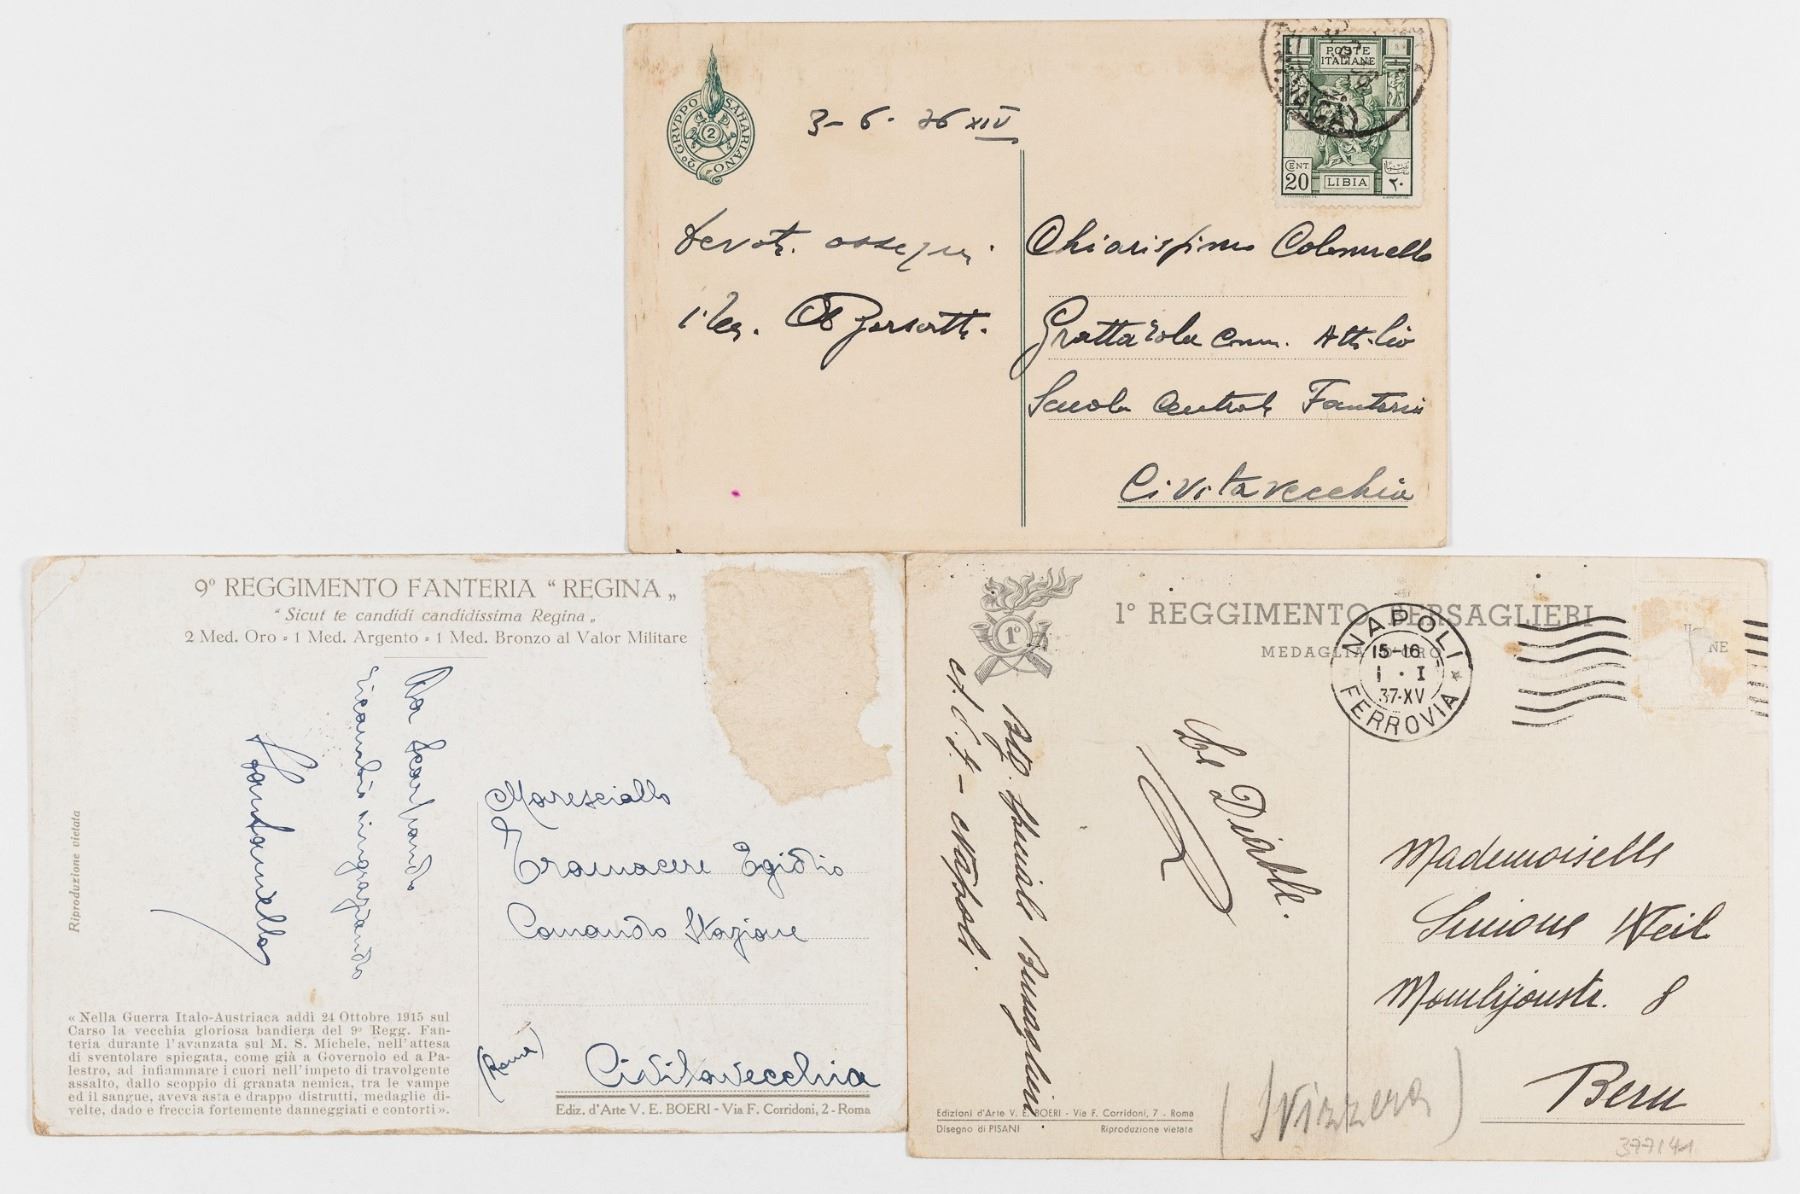 2° GRVPPO SAHARIANO
2
3-6-36 XIV
POSTE
ITALIANE
CENT
20
LIBIA
٢٠
devoti ossequi
Chiarissimo Colonnello
Grattarola Comm. Attilio
Scuola Centrale Fanteria
Civitavecchia
9° REGGIMENTO FANTERIA "REGINA„
"Sicut te candidi candidissima Regina„
2 Med. Oro - 1 Med. Argento - 1 Med. Bronzo al Valor Militare
Da Scarpanto
ricambio ringraziando
Santaniello
Riproduzione vietata
Maresciallo
Tramacere Egidio
Comando Stazione
(Roma)
Civitavecchia
« Nella Guerra Italo-Austriaca addì 24 Ottobre 1915 sul
Carso la vecchia gloriosa bandiera del 9° Regg. Fan-
teria durante l'avanzata sul M. S. Michele, nell'attesa
di sventolare spiegata, come già a Governolo ed a Pa-
lestro, ad infiammare i cuori nell'impeto di travolgente
assalto, dallo scoppio di granata nemica, tra le vampe
ed il sangue, aveva asta e drappo distrutti, medaglie di-
velte, dado e freccia fortemente danneggiati e contorti ».
Ediz. d'Arte V. E. BOERI - Via F. Corridoni, 2 - Roma
1°
1° REGGIMENTO BERSAGLIERI
MEDAGLIA D'ORO
NAPOLI
15-16
1 · I
37·XV
FERROVIA
NE
Le Diable.
Napoli.
Mademoiselle
Simone Weil
Monbijoustr. 8
Bern
(Svizzera)
Edizioni d'Arte V. E. BOERI - Via F. Corridoni, 7 - Roma
Disegno di PISANI
Riproduzione vietata
377141